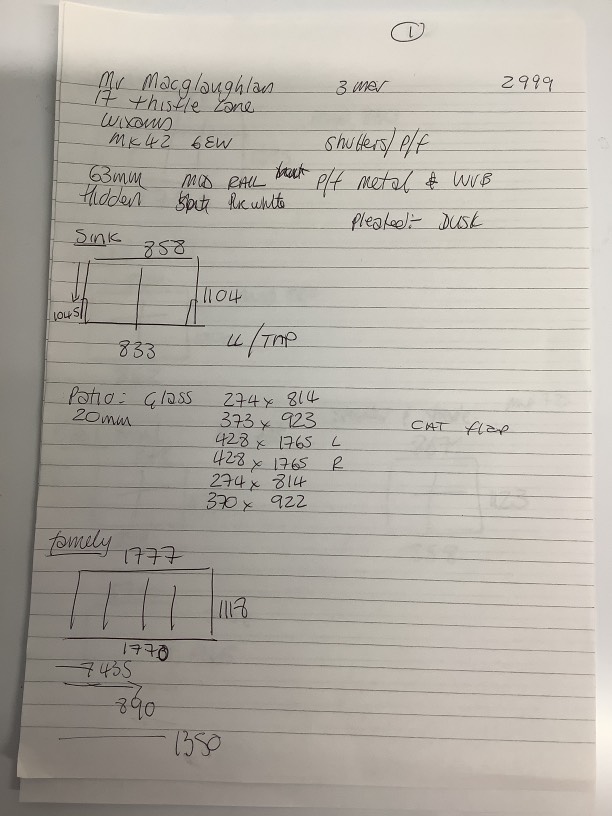 1
Mr Macglaughlan 3 mer 2999
17 Thistle Lane
Wixams
MK42 6EW shutters/ P/f
63mm MID RAIL P/f metal & WVB
Hidden Pure white
Pleated:- Dusk
Sink
858
1104
1045
833 LL/TMP
Patio: Glass 274 x 814
20mm 373 x 923 CAT flap
428 x 1765 L
428 x 1765 R
274 x 814
370 x 922
family
1777
1118
1770
435
890
1350